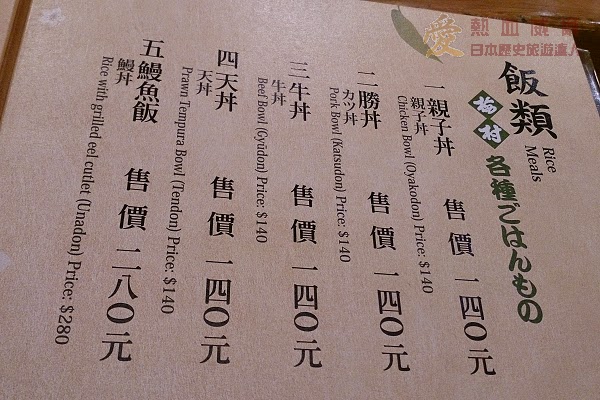 飯類
Rice Meals
梅村
各種ごはんもの
一 親子丼 售價 一四〇元
親子丼
Chicken Bowl (Oyakodon) Price: $140
二 勝丼 售價 一四〇元
カツ丼
Pork Bowl (Katsudon) Price: $140
三 牛丼 售價 一四〇元
牛丼
Beef Bowl (Gyūdon) Price: $140
四 天丼 售價 一四〇元
天丼
Prawn Tempura Bowl (Tendon) Price: $140
五 鰻魚飯 售價 二八〇元
鰻丼
Rice with grilled eel cutlet (Unadon) Price: $280
愛
日本歷史旅遊達人